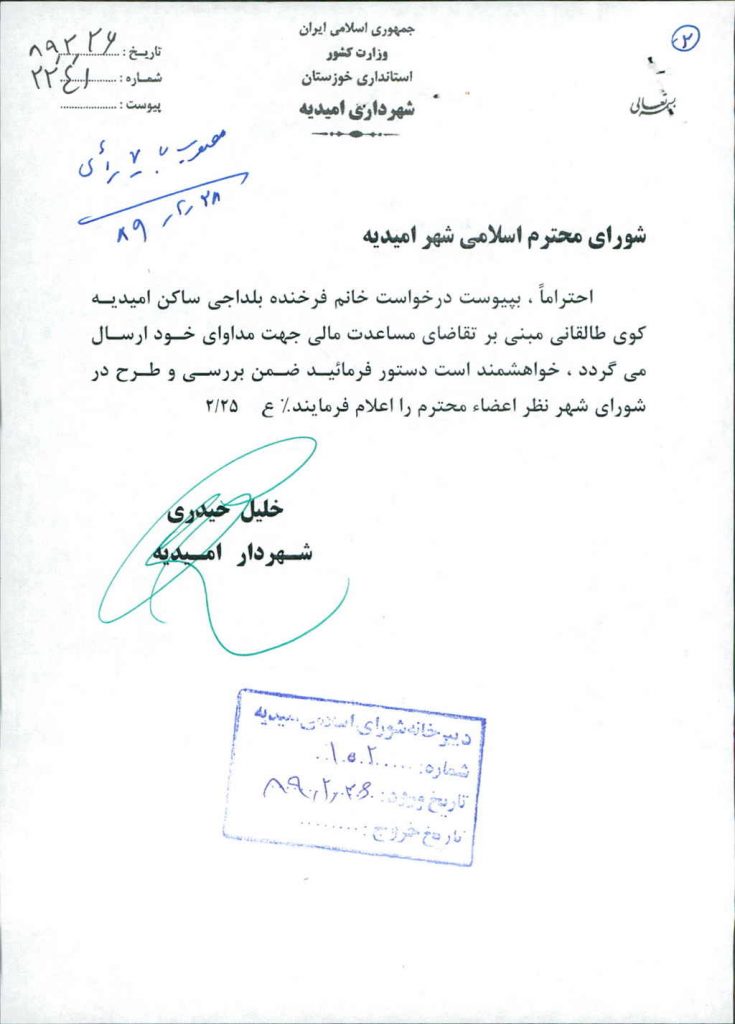 ۲
بسمه تعالی
جمهوری اسلامی ایران
وزارت کشور
استانداری خوزستان
شهرداری امیدیه
تاریخ : ۸۹,۲,۲۶
شماره : ۲۲۴۱
پیوست : ....................
مصوب با ۷ رأی
۸۹,۲,۲۸
شورای محترم اسلامی شهر امیدیه
احتراماً ، بپیوست درخواست خانم فرخنده بلداجی ساکن امیدیـه
کوی طالقانی مبنی بر تقاضای مساعدت مالی جهت مداوای خـود ارسـال
می گردد ، خواهشمند است دستور فرمائیـد ضمـن بررسـی و طـرح در
شورای شهر نظر اعضاء محترم را اعلام فرمایند.٪ ع ۲/۲۵
خلیل حیدری
شـهردار امـیدیه
دبیرخانه شورای اسلامی امیدیه
شماره: ۱۰۵۲
تاریخ ورود: ۸۹,۲,۲۶
تاریخ خروج : .........